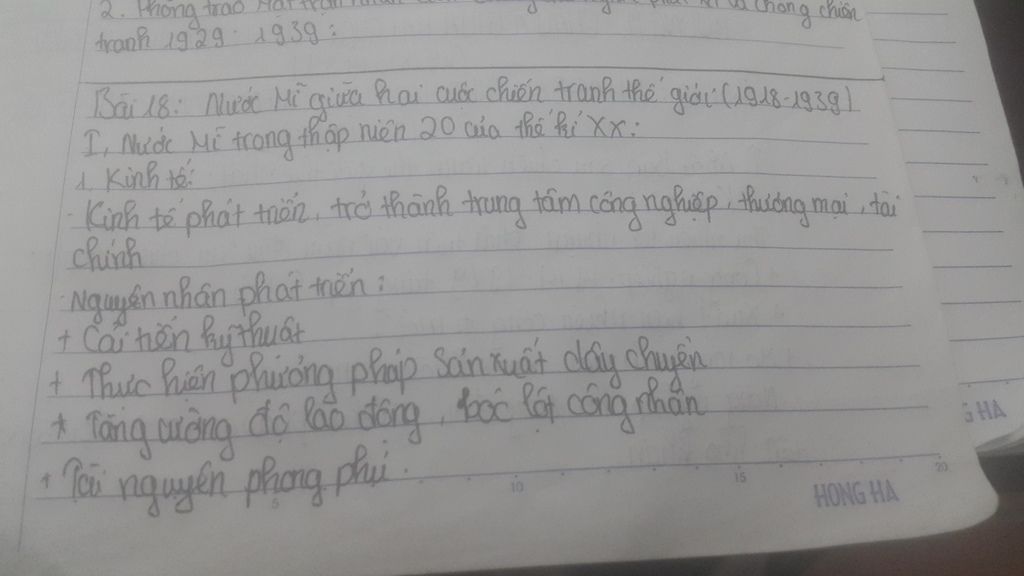 2. Phong trào Mặt trận Nhân
chống chiến
tranh 1929-1939:
Bài 18: Nước Mĩ giữa hai cuộc chiến tranh thế giới (1918-1939)
I, Nước Mĩ trong thập niên 20 của thế kỉ XX:
1. Kinh tế:
- Kinh tế phát triển, trở thành trung tâm công nghiệp, thương mại, tài
chính
- Nguyên nhân phát triển:
+ Cải tiến kỹ thuật
+ Thực hiện phương pháp sản xuất dây chuyền
+ Tăng cường độ lao động, bóc lột công nhân
+ Tài nguyên phong phú.
5 10 15 20
HONG HA
G HA